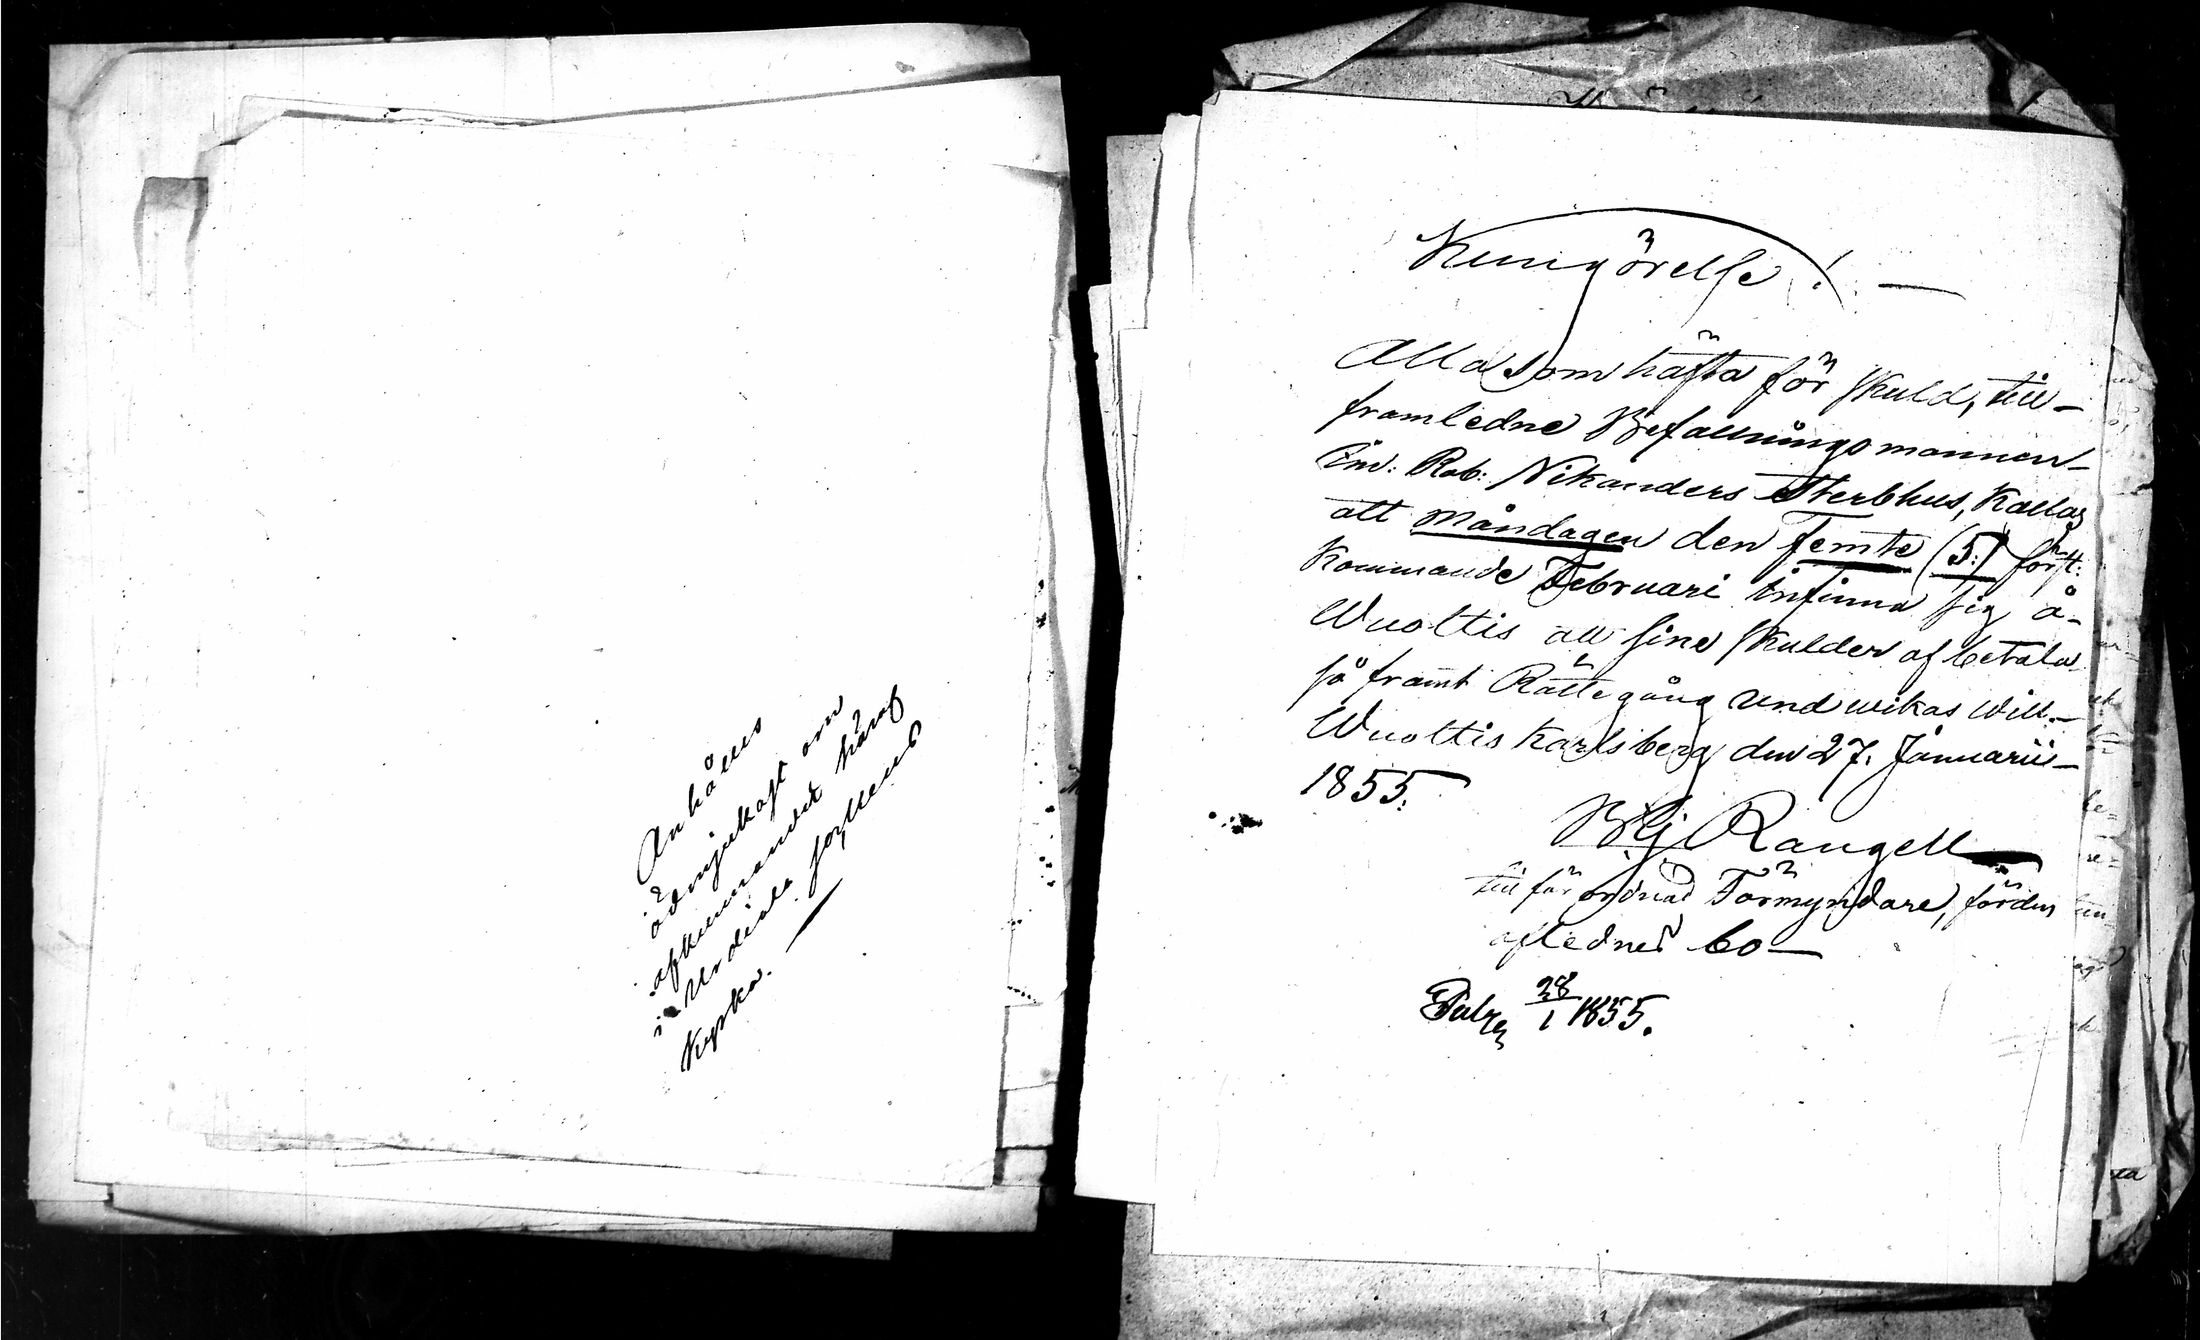 Anhålles
ödmjukast om
afkunnandet häraf
i Urdiala sochns
Kyrka. —
Kungörelse! —
Alla som häfta för skuld, till-
framledne Befallningsmannen-
Rob: Nikanders Sterbhus, Kallas
att Måndagen den femte (5:) först:
Kommande Februari infinna sig å-
Wuoltis att sine skulder af betala
så framt Rättegång undwikas will.-
Wuoltis Karlsberg den 27. Januarii-
1855.
Rangell
till för ordnad Förmyndare, för den
aflednes bo —
28/1 1855.